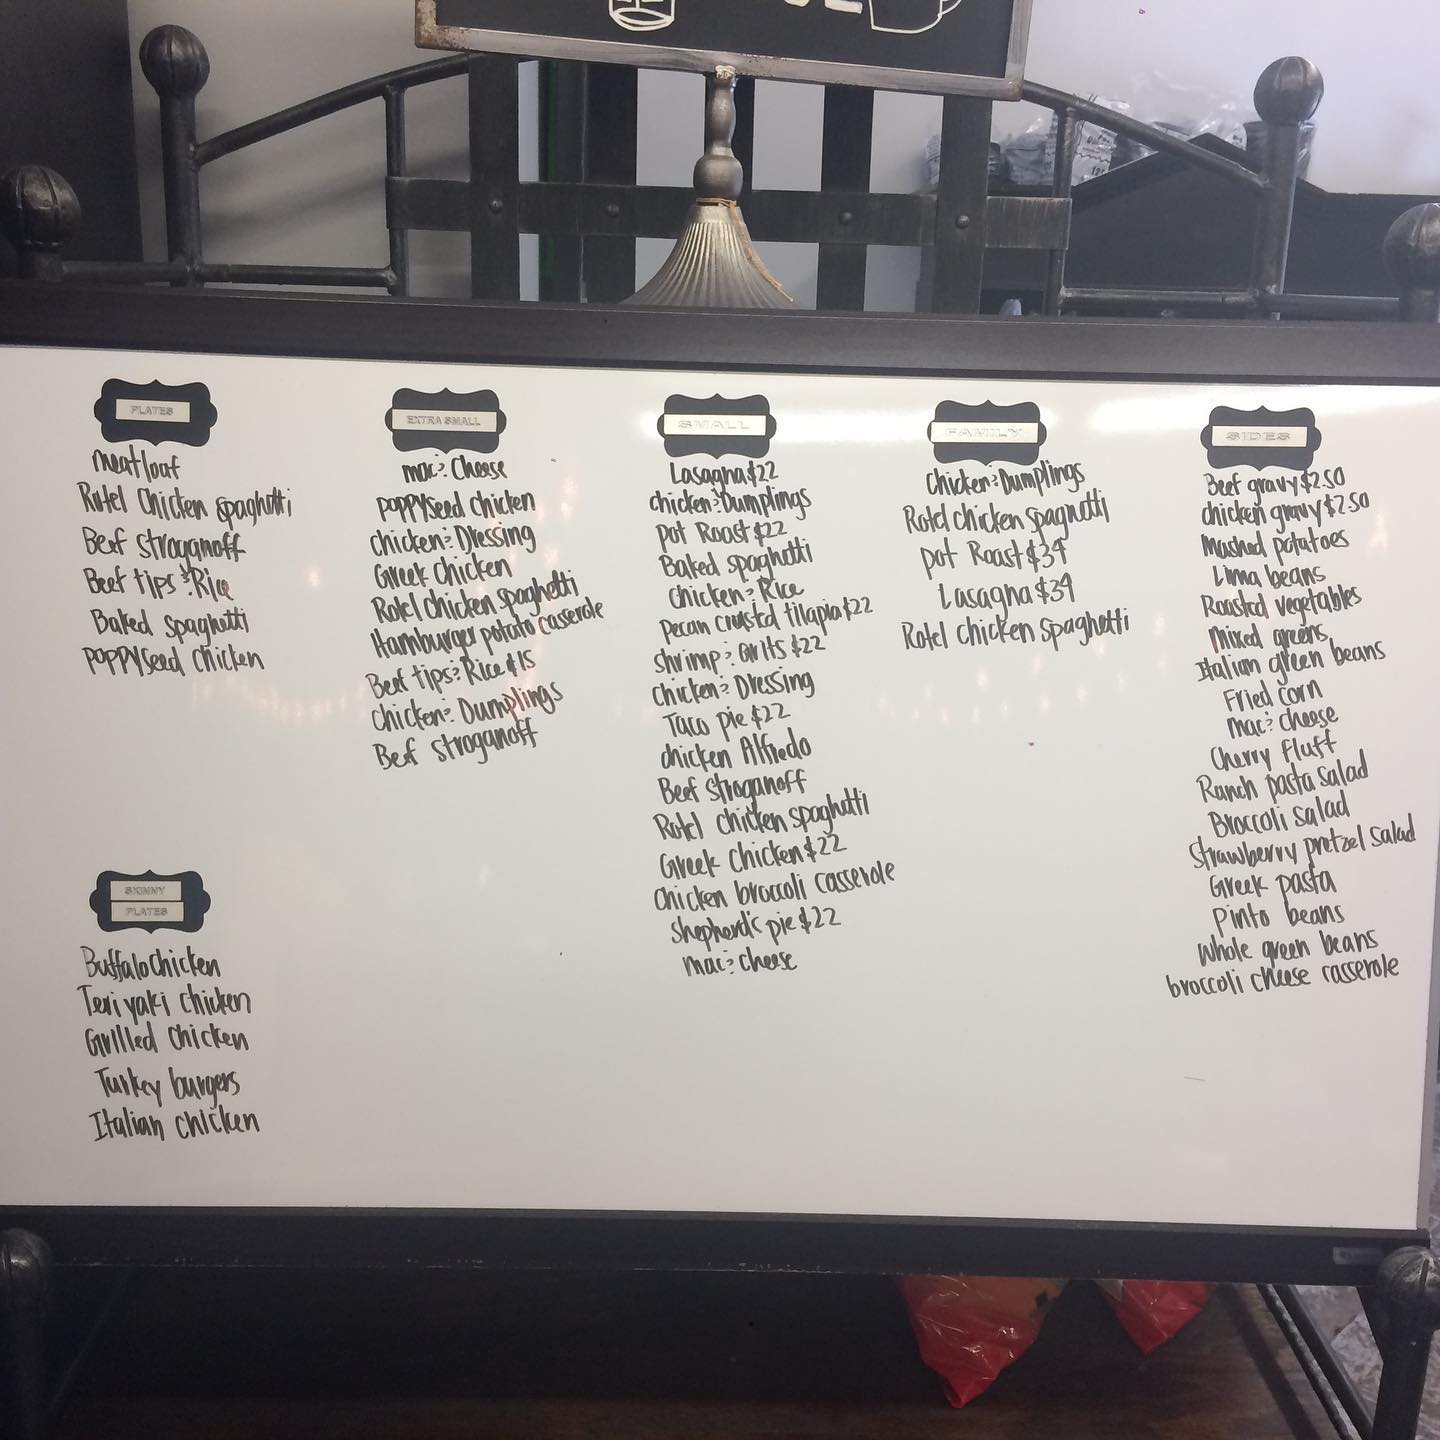 PLATES
meatloaf
Rotel Chicken spaghetti
Beef stroganoff
Beef tips & Rice
Baked spaghetti
poppyseed chicken
SKINNY
PLATES
Buffalo chicken
Teriyaki chicken
Grilled chicken
Turkey burgers
Italian chicken
EXTRA SMALL
mac & cheese
poppyseed chicken
chicken & Dressing
Greek chicken
Rotel chicken spaghetti
Hamburger potato casserole
Beef tips & Rice $15
chicken & Dumplings
Beef stroganoff
SMALL
Lasagna $22
chicken & Dumplings
pot Roast $22
Baked spaghetti
chicken & Rice
Pecan crusted tilapia $22
shrimp & Grits $22
chicken & Dressing
Taco pie $22
chicken Alfredo
Beef stroganoff
Rotel chicken spaghetti
Greek chicken $22
Chicken broccoli casserole
shepherd's pie $22
mac & cheese
FAMILY
chicken & Dumplings
Rotel chicken spaghetti
pot Roast $34
Lasagna $34
Rotel chicken spaghetti
SIDES
Beef gravy $2.50
chicken gravy $2.50
Mashed potatoes
Lima beans
Roasted vegetables
mixed greens
Italian green beans
Fried corn
mac & cheese
Cherry fluff
Ranch pasta salad
Broccoli salad
strawberry pretzel salad
Greek pasta
pinto beans
whole green beans
broccoli cheese casserole